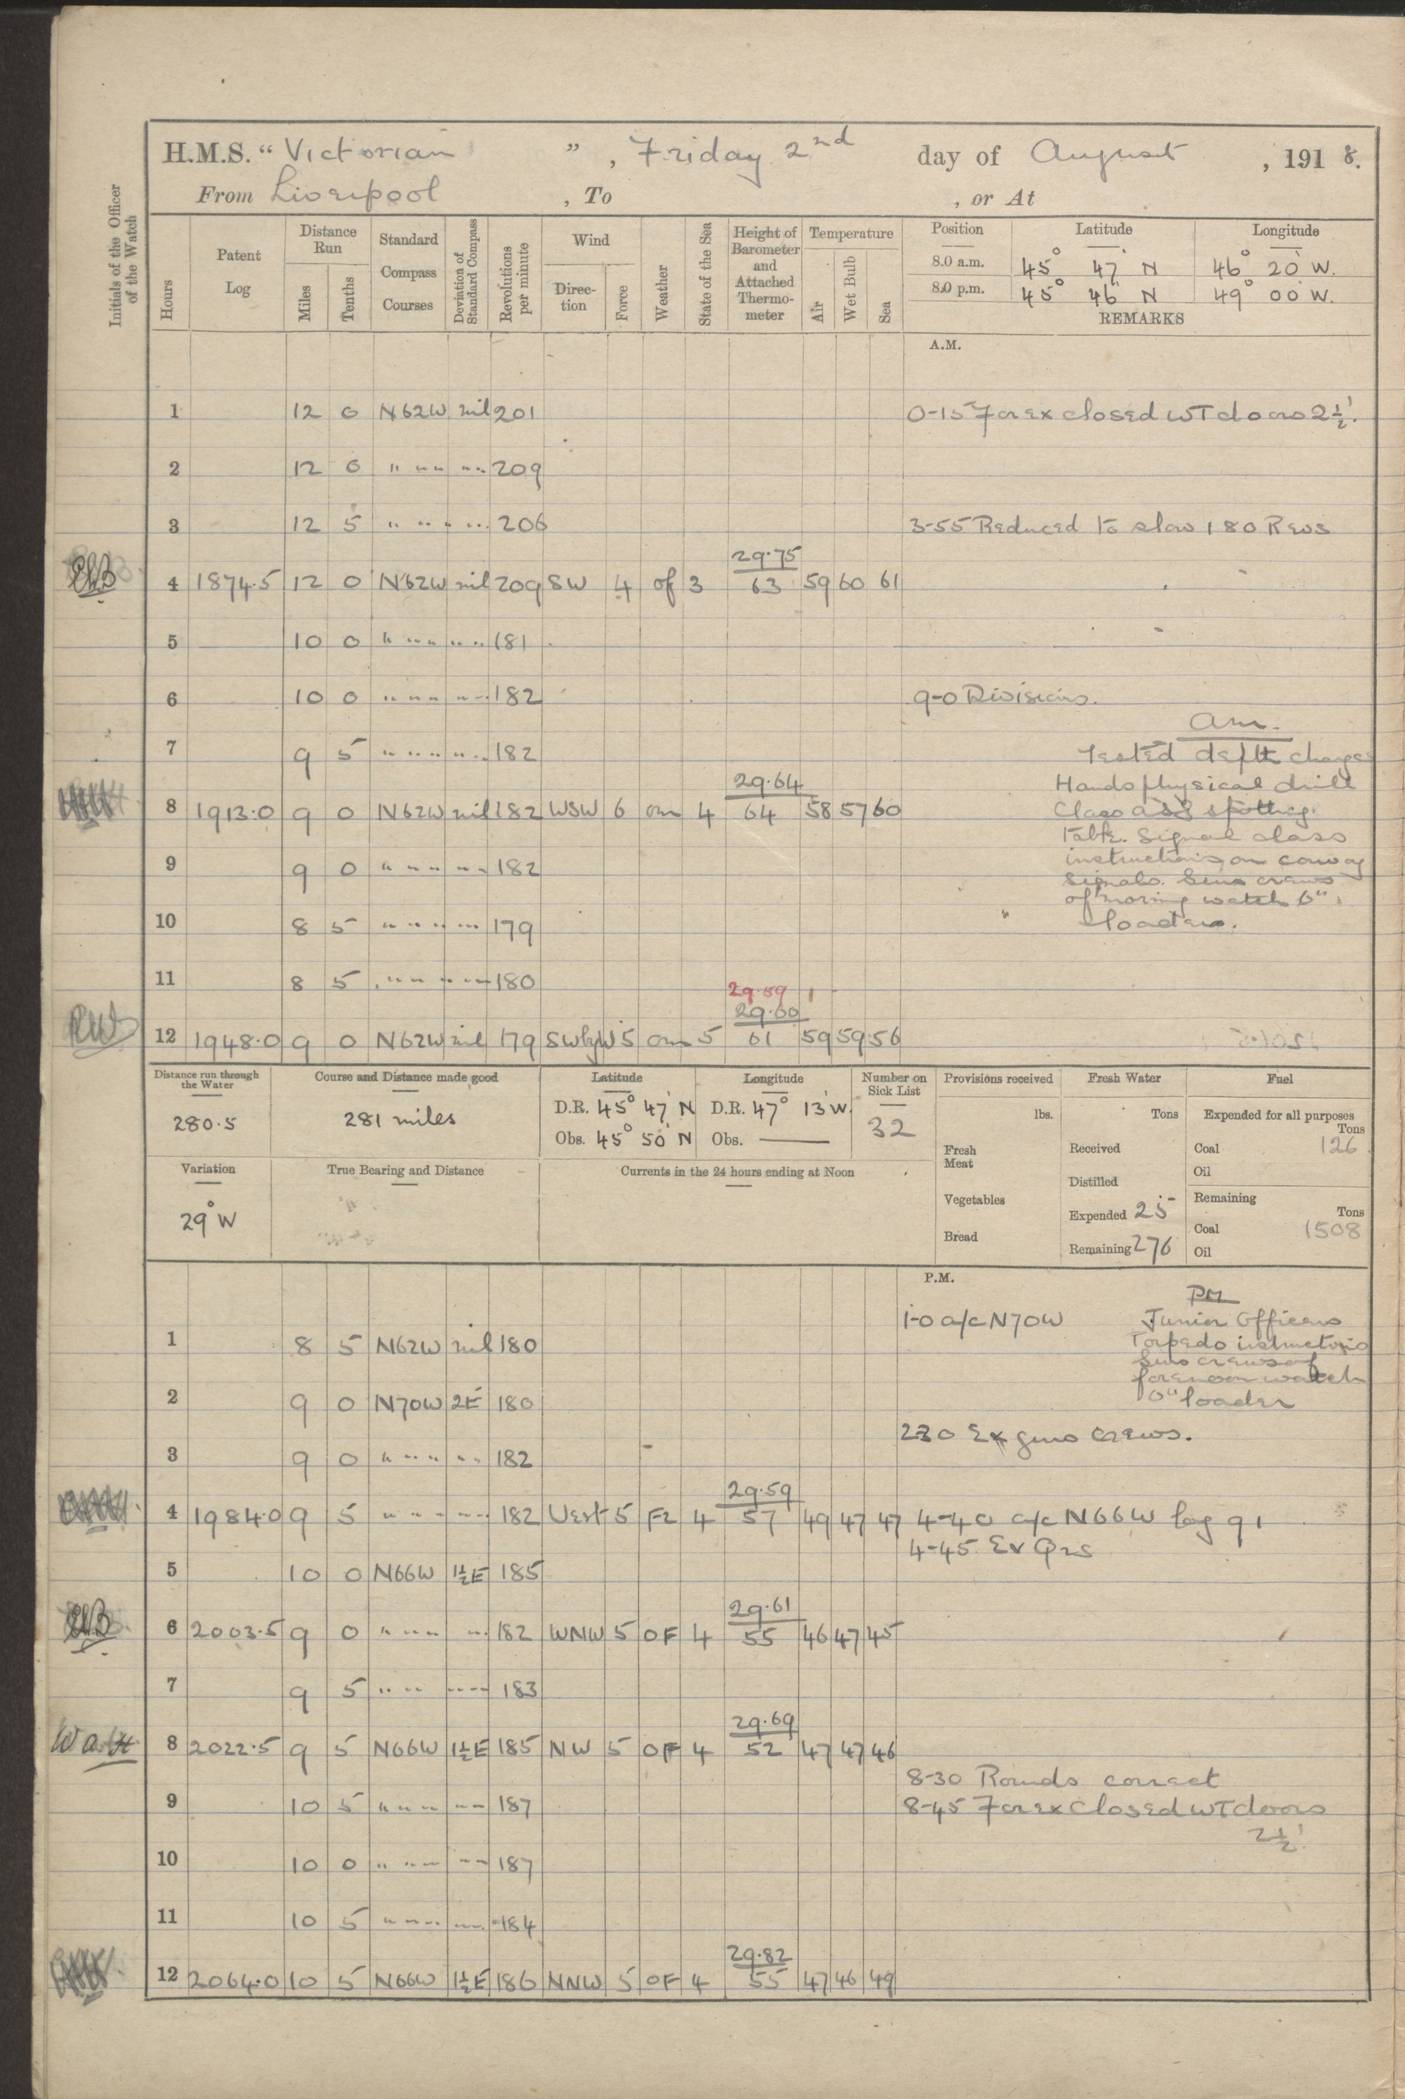 H.M.S. "Victorian", Friday 2nd day of August, 1918.
From Liverpool, To , or At
Initials of the Officer of the Watch
Hours
Patent Log
Distance Run
Miles
Tenths
Standard Compass Courses
Deviation of Standard Compass
Revolutions per minute
Wind
Direction
Force
Weather
State of the Sea
Height of Barometer and Attached Thermometer
Temperature
Air
Wet Bulb
Sea
Position Latitude Longitude
8.0 a.m. 45° 47' N 46° 20' W.
8.0 p.m. 45° 46' N 49° 00' W.
REMARKS
A.M.
1 12 0 N62W nil 201 0-15 For ex closed WT doors 2½'.
2 12 0 " " " " " 209
3 12 5 " " " " " 206 3-55 Reduced to slow 180 Revs
29.75
4 1874.5 12 0 N62W nil 209 SW 4 of 3 63 59 60 61
5 10 0 " " " " " 181
6 10 0 " " " " " 182 9-0 Divisions.
am.
7 9 5 " " " " " 182 Tested depth charges
29.64 Hands physical drill
8 1913.0 9 0 N62W nil 182 WSW 6 om 4 64 58 57 60 Class at spotting
Table. Signal class
9 9 0 " " " " " 182 instructions on convoy
signals. Guns crews
of moring watch 6"
10 8 5 " " " " " 179 loaders.
11 8 5 " " " " " 180
29.59
29.60
RW
12 1948.0 9 0 N62W nil 179 SWbyW 5 om 5 61 59 59 56
Distance run through the Water
280.5
Course and Distance made good
281 miles
Latitude
D.R. 45° 47' N
Obs. 45° 50' N
Longitude
D.R. 47° 13' W.
Obs. ———
Number on Sick List
32
Provisions received
lbs.
Fresh Meat
Vegetables
Bread
Fresh Water
Tons
Received
Distilled
Expended 25
Remaining 276
Fuel
Expended for all purposes
Tons
Coal 126
Oil
Remaining
Tons
Coal 1508
Oil
Variation
29° W
True Bearing and Distance
Currents in the 24 hours ending at Noon
P.M.
PM
1-0 a/c N70W Junior Officers
1 8 5 N62W nil 180 Torpedo instructions
Guns crews of
forenoon watch
2 9 0 N70W 2E 180 6" loader
230 Ex guns crews.
3 9 0 " " " " " 182
29.59
4 1984.0 9 5 " " " " " 182 West 5 Fz 4 57 49 47 47 4-40 a/c N66W log 91
4-45 Ev Qrs
5 10 0 N66W 1½E 185
29.61
6 2003.5 9 0 " " " " 182 WNW 5 OF 4 55 46 47 45
7 9 5 " " " " 183
29.69
8 2022.5 9 5 N66W 1½E 185 NW 5 OF 4 52 47 47 46
8-30 Rounds correct
9 10 5 " " " " 187 8-45 For ex Closed WT doors
2½'
10 10 0 " " " " 187
11 10 5 " " " " 184
29.82
12 2064.0 10 5 N66W 1½E 186 NNW 5 OF 4 55 47 46 49